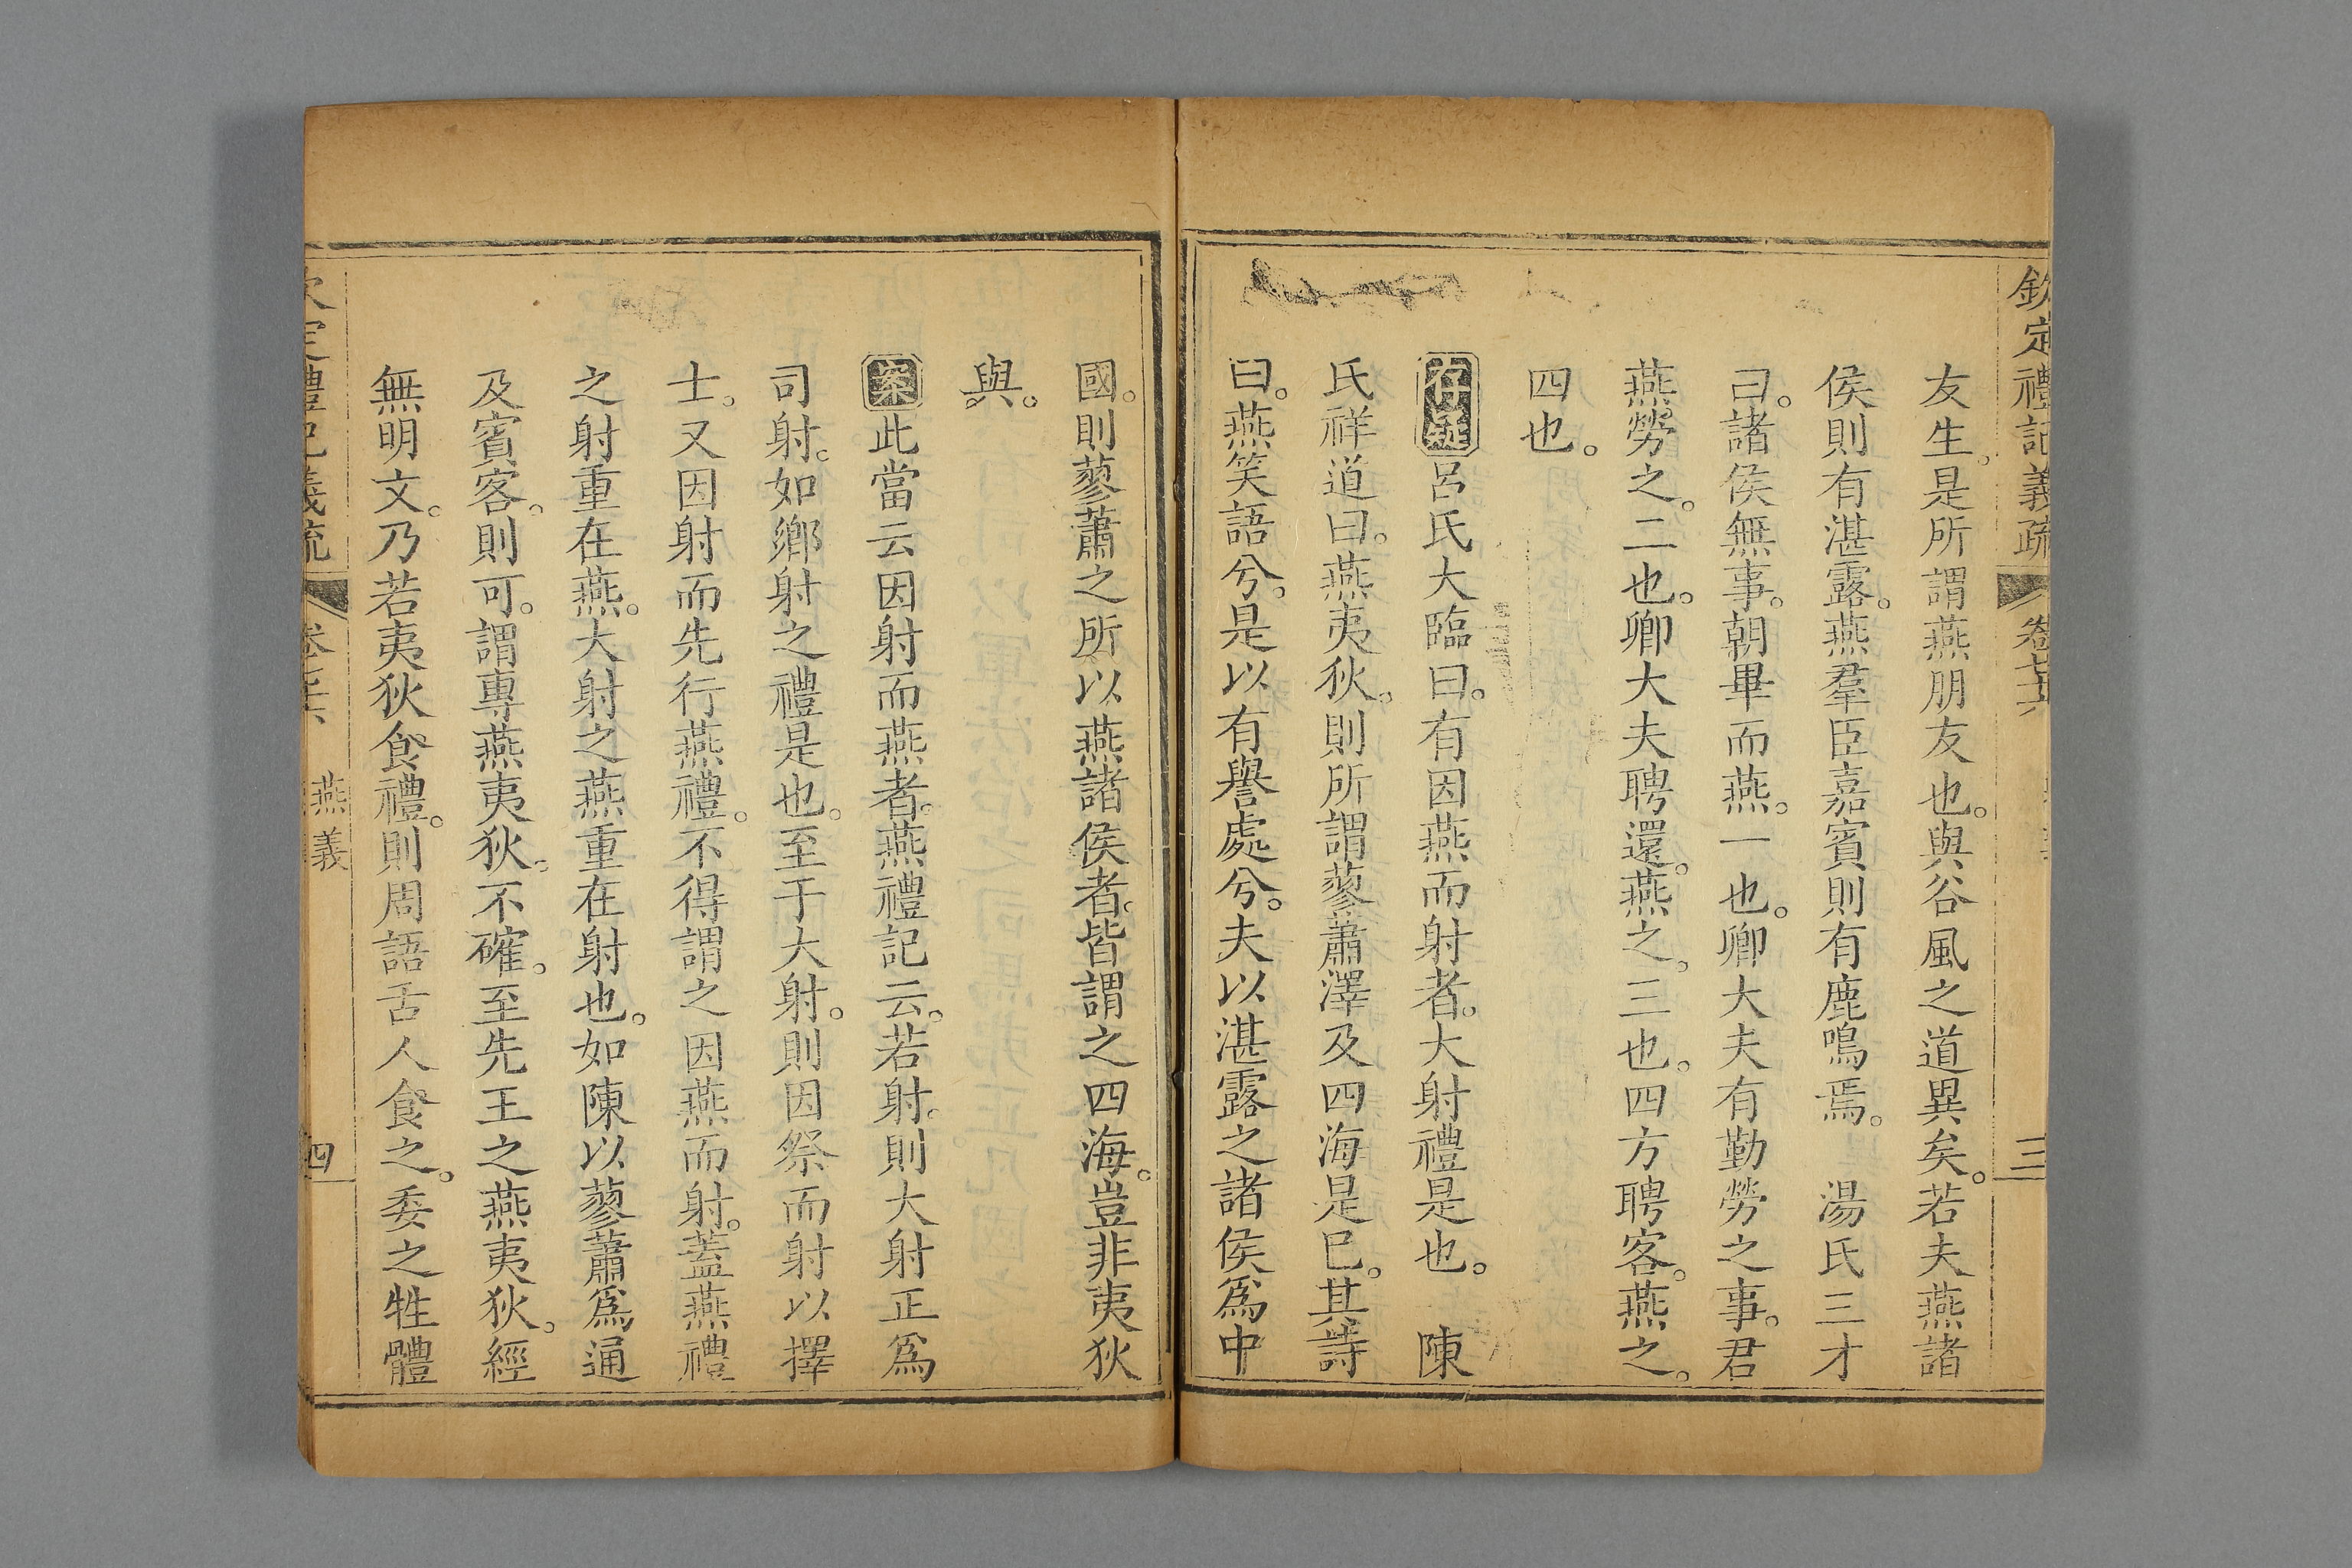 欽定禮記義疏 卷七十六 三
友生。是所謂燕朋友也。與谷風之道異矣。若夫燕諸
侯則有湛露。燕羣臣嘉賓則有鹿鳴焉。 湯氏三才
曰。諸侯無事。朝畢而燕。一也。卿大夫有勤勞之事。君
燕勞之。二也。卿大夫聘還。燕之。三也。四方聘客。燕之。
四也。
存疑 呂氏大臨曰。有因燕而射者。大射禮是也。 陳
氏祥道曰。燕夷狄。則所謂蓼蕭澤及四海是巳。其詩
曰。燕笑語兮。是以有譽處兮。夫以湛露之諸侯為中
國。則蓼蕭之所以燕諸侯者。皆謂之四海。豈非夷狄
與。
案 此當云因射而燕者。燕禮記云。若射。則大射正為
司射。如鄉射之禮是也。至于大射。則因祭而射以擇
士。又因射而先行燕禮。不得謂之因燕而射。蓋燕禮
之射重在燕。大射之燕重在射也。如陳以蓼蕭為通
及賓客。則可。謂專燕夷狄。不確。至先王之燕夷狄。經
無明文。乃若夷狄食禮。則周語舌人食之。委之牲體
欽定禮記義疏 卷七十六 燕義 四